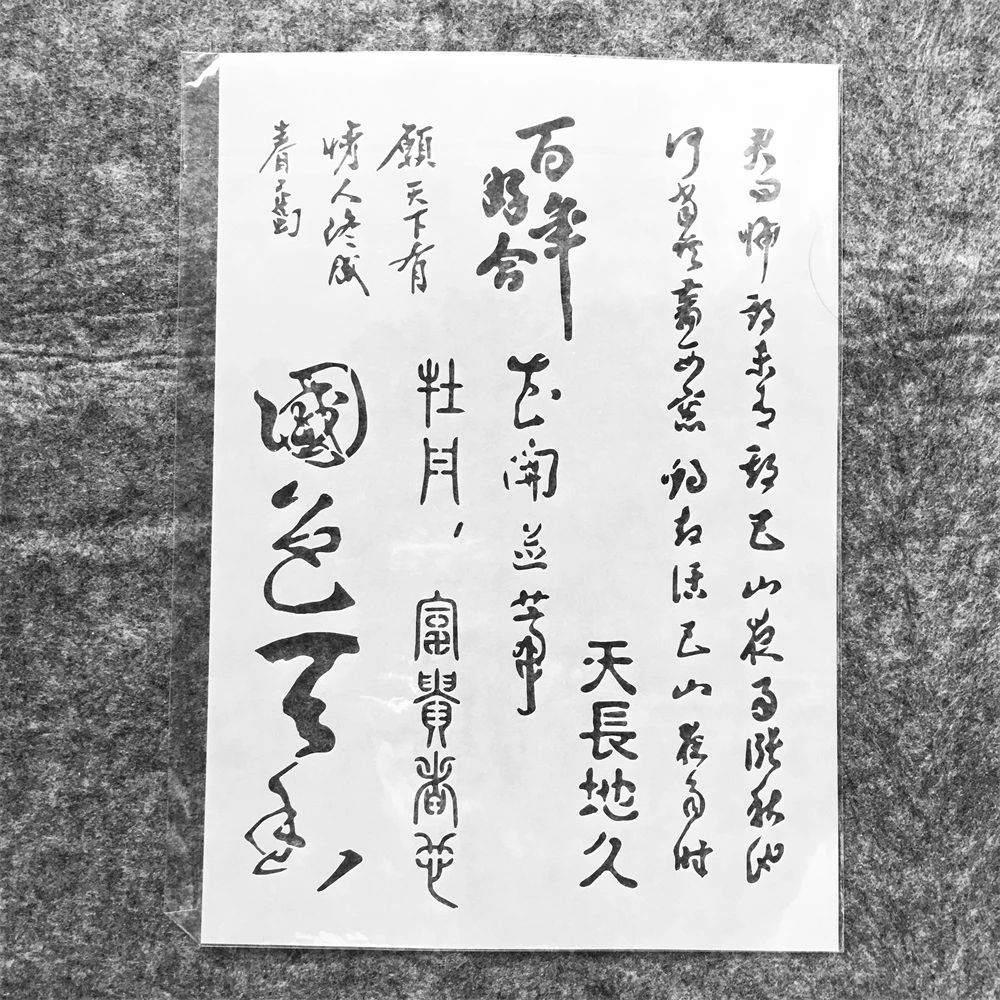 君問歸期未有期巴山夜雨漲秋池
何當共剪西窗燭却話巴山夜雨時
天長地久
百年
好合
花開並蒂
願天下有
情人終成
眷屬
牡丹，富貴者也
國色天香，